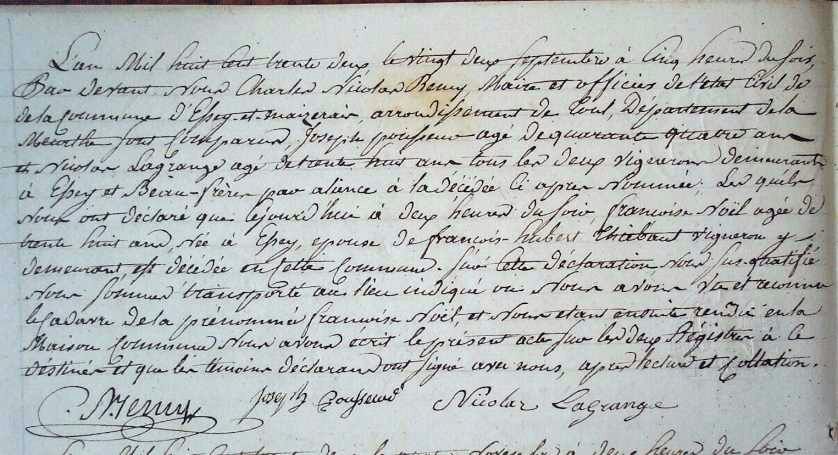 L'an Mil huit cent trente deux le vingt deux septembre à Cinq heures du soir,
Par devant Nous Charles Nicolas Remy, Maire et officier de l'état Civil de
de la Commune d'Essey-et-maizerais, arrondissement de Toul, Département de la
Meurthe sont comparus, Joseph pousseur agé de quarante quatre ans
et Nicolas Lagrange agé de trente huit ans tous les deux vignerons demeurants
à Essey et Beau-frères par aliance à la décédée Ci après Nommée; Les quels
Nous ont declaré que cejourd'hui à deux heures du soir, francoise Noël agée de
trente huit ans, Née à Essey, epouse de francois-hubert Thiébaut vigneron y
demeurant est décédée en Cette Commune. Sur Cette declaration Nous sus-qualifié
Nous sommes transporté au lieu indiqué ou Nous avons Vu et reconnu
le Cadavre de la prénommée francoise Noël, et Nous etant ensuite rendu en la
Maison Commune Nous avons ecrit le présent acte sur les deux Régistres à Ce
destinés et que les temoins déclarans ont signé avec nous, après lecture et Collation.
N. Remy Joseph Nicolas LaGrange
à deux heures du soir